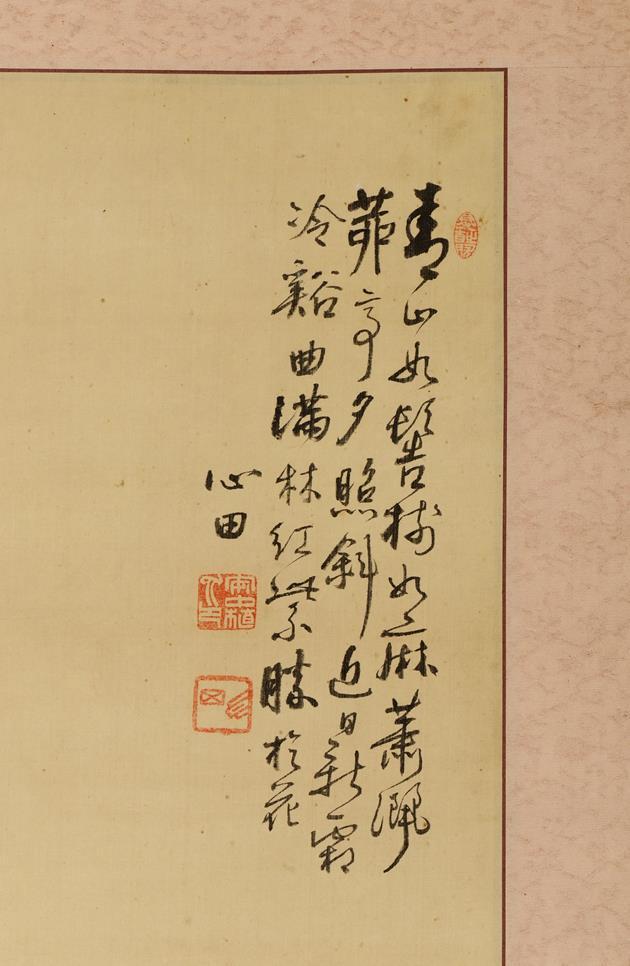 青山如髻樹如麻蕭颯
茆亭夕照斜近日新霜
冷谿曲滿林紅紫勝於花
心田